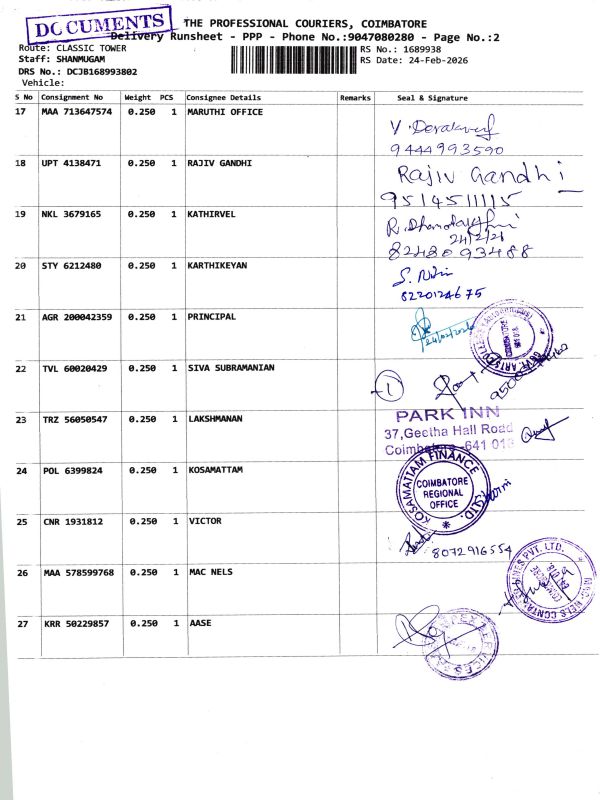 DOCUMENTS
THE PROFESSIONAL COURIERS, COIMBATORE
Delivery Runsheet - PPP - Phone No.:9047080280 - Page No.:2
Route: CLASSIC TOWER
RS No.: 1689938
Staff: SHANMUGAM
RS Date: 24-Feb-2026
DRS No.: DCJB168993802
Vehicle:
S No Consignment No Weight PCS Consignee Details Remarks Seal & Signature
17 MAA 713647574 0.250 1 MARUTHI OFFICE
9444993590
18 UPT 4138471 0.250 1 RAJIV GANDHI Rajiv Gandhi
9514511115
19 NKL 3679165 0.250 1 KATHIRVEL
24/2/26
8248093488
20 STY 6212480 0.250 1 KARTHIKEYAN
8220124675
21 AGR 200042359 0.250 1 PRINCIPAL 24/02/2026
22 TVL 60020429 0.250 1 SIVA SUBRAMANIAN 1
23 TRZ 56050547 0.250 1 LAKSHMANAN PARK INN
37,Geetha Hall Road
Coimbatore -641 018
24 POL 6399824 0.250 1 KOSAMATTAM KOSAMATTAM FINANCE LTD.
COIMBATORE
REGIONAL
OFFICE
25 CNR 1931812 0.250 1 VICTOR 8072916554
26 MAA 578599768 0.250 1 MAC NELS
27 KRR 50229857 0.250 1 AASE